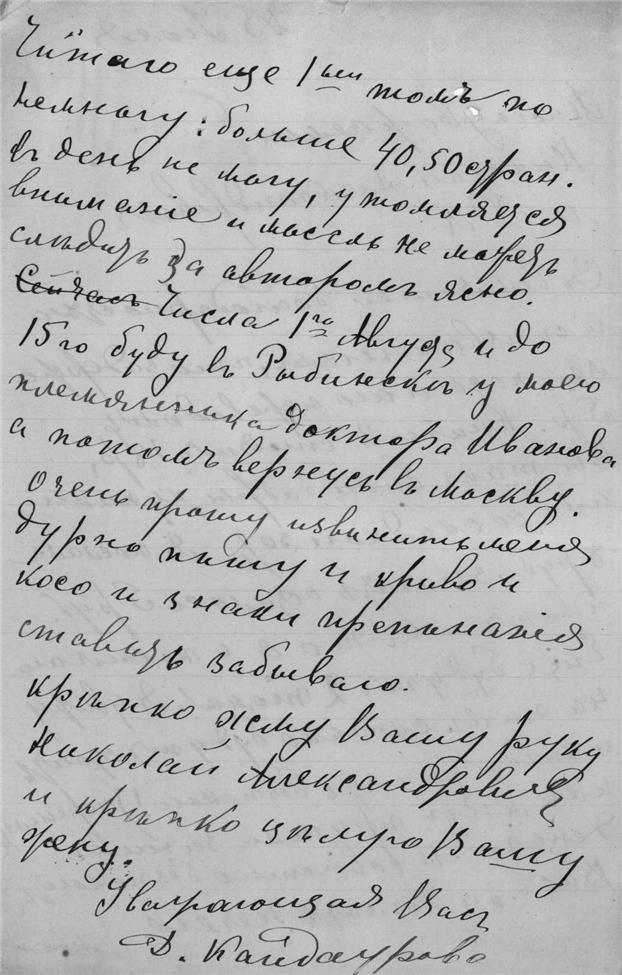 Читаю еще 1ый томъ по
немногу: больше 40, 50 стран.
въ день не могу, утомляется
вниманіе и мысль не можетъ
слѣдить за авторомъ ясно.
Сейчасъ Числа 1го Августа и до
15го буду въ Рыбинскѣ у моего
племянника доктора Иванова
а потомъ вернусь въ Москву.
Очень прошу извинить меня
дурно пишу и криво и
косо и знаки препинанія
ставить забываю.
Крѣпко жму Вашу руку
Николай Александровичъ
и крѣпко цѣлую Вашу
жену.
Уважающая Васъ
Кайдаурова